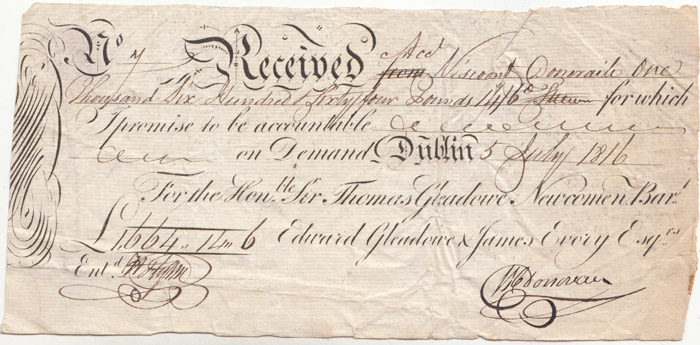 No 7 Received from Accᵗ Viscount Doneraile One
Thousand Six Hundred Sixty four Pounds 14/6 for which
I promise to be accountable
on Demand, Dublin 5 July 1816
For the Honᵇˡᵉ Sir Thomas Gleadowe Newcomen Barᵗ
£1664-14-6 Edward Gleadowe & James Evory Esqʳᵉˢ
Entᵈ